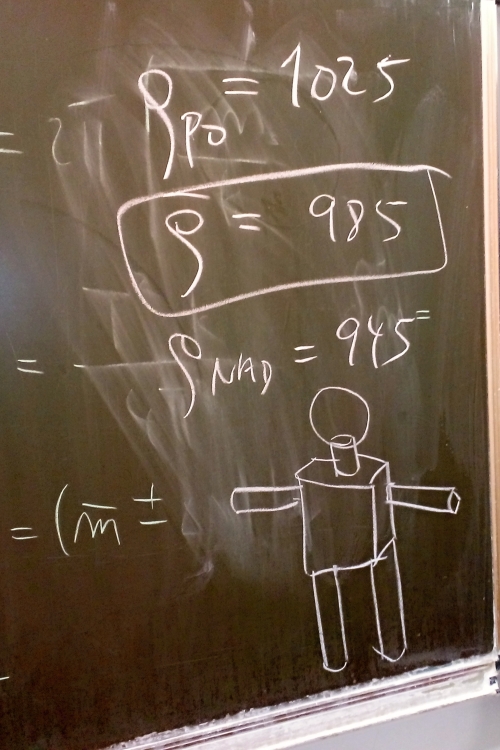 ρ_PO = 1025
ρ̄ = 985
ρ_NAD = 945
= (m̄ ±